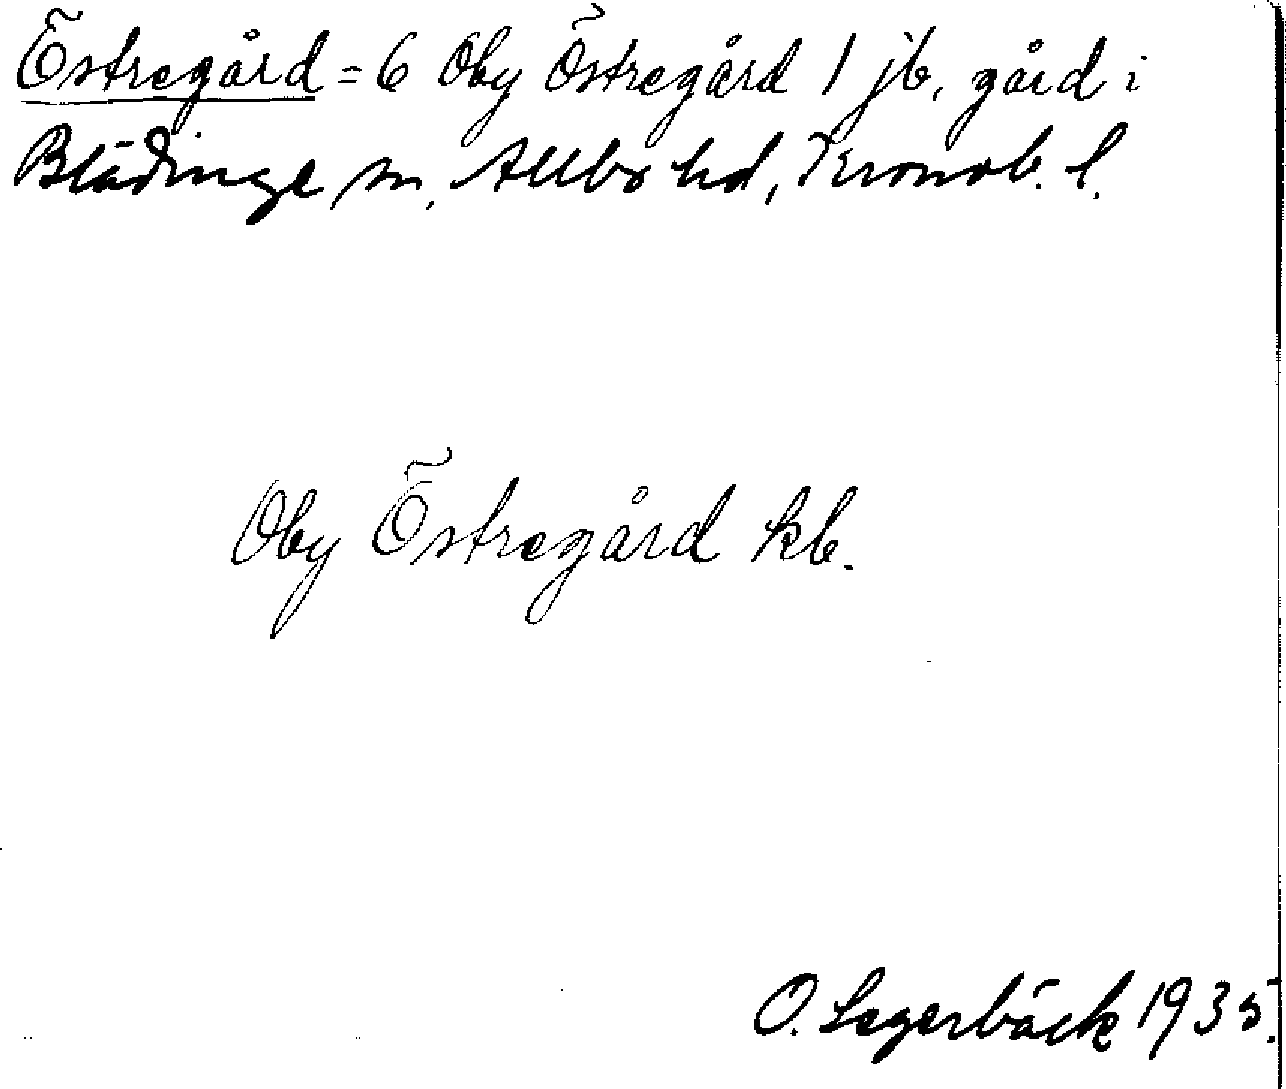 Östregård = 6 Oby Östregård 1 jb, gård i
Blädinge sn, Allbo hd, Kronob. l.
Oby Östregård kb.
O. Lagerbäck 1935.